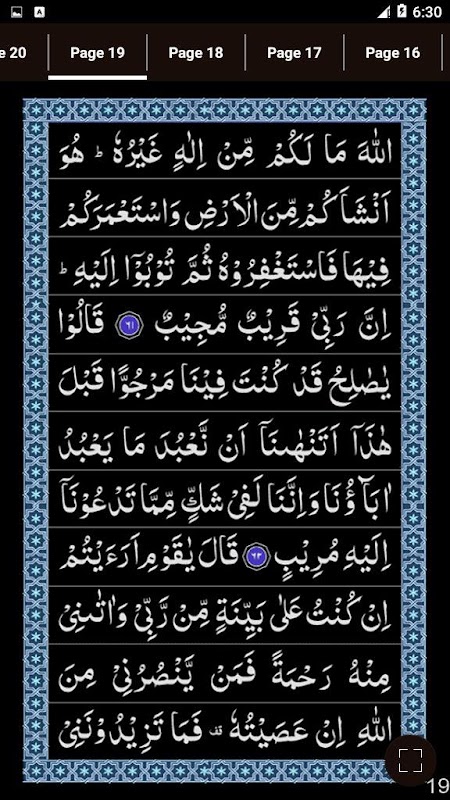 6:30
e 20 Page 19 Page 18 Page 17 Page 16
اللهَ مَا لَكُمْ مِّنْ اِلٰهٍ غَيْرُهٗ ؕ هُوَ
اَنْشَاَكُمْ مِّنَ الْاَرْضِ وَاسْتَعْمَرَكُمْ
فِيْهَا فَاسْتَغْفِرُوْهُ ثُمَّ تُوْبُوْۤا اِلَيْهِ ؕ
اِنَّ رَبِّيْ قَرِيْبٌ مُّجِيْبٌ ٦١ قَالُوْا
يٰصٰلِحُ قَدْ كُنْتَ فِيْنَا مَرْجُوًّا قَبْلَ
هٰذَاۤ اَتَنْهٰىنَاۤ اَنْ نَّعْبُدَ مَا يَعْبُدُ
اٰبَآؤُنَا وَاِنَّنَا لَفِيْ شَكٍّ مِّمَّا تَدْعُوْنَاۤ
اِلَيْهِ مُرِيْبٍ ٦٢ قَالَ يٰقَوْمِ اَرَءَيْتُمْ
اِنْ كُنْتُ عَلٰى بَيِّنَةٍ مِّنْ رَّبِّيْ وَاٰتٰىنِيْ
مِنْهُ رَحْمَةً فَمَنْ يَّنْصُرُنِيْ مِنَ
اللهِ اِنْ عَصَيْتُهٗ قف فَمَا تَزِيْدُوْنَنِيْ
19